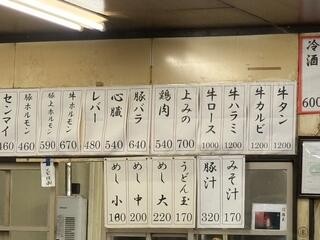 冷酒
600
牛タン
1200
牛カルビ
1200
牛ハラミ
1200
牛ロース
1000
上みの
700
鶏肉
540
豚バラ
640
心臓
540
レバー
480
牛ホルモン
670
豚上ホルモン
590
豚ホルモン
460
センマイ
460
みそ汁
170
豚汁
320
うどん玉
170
めし大
220
めし中
200
めし小
180